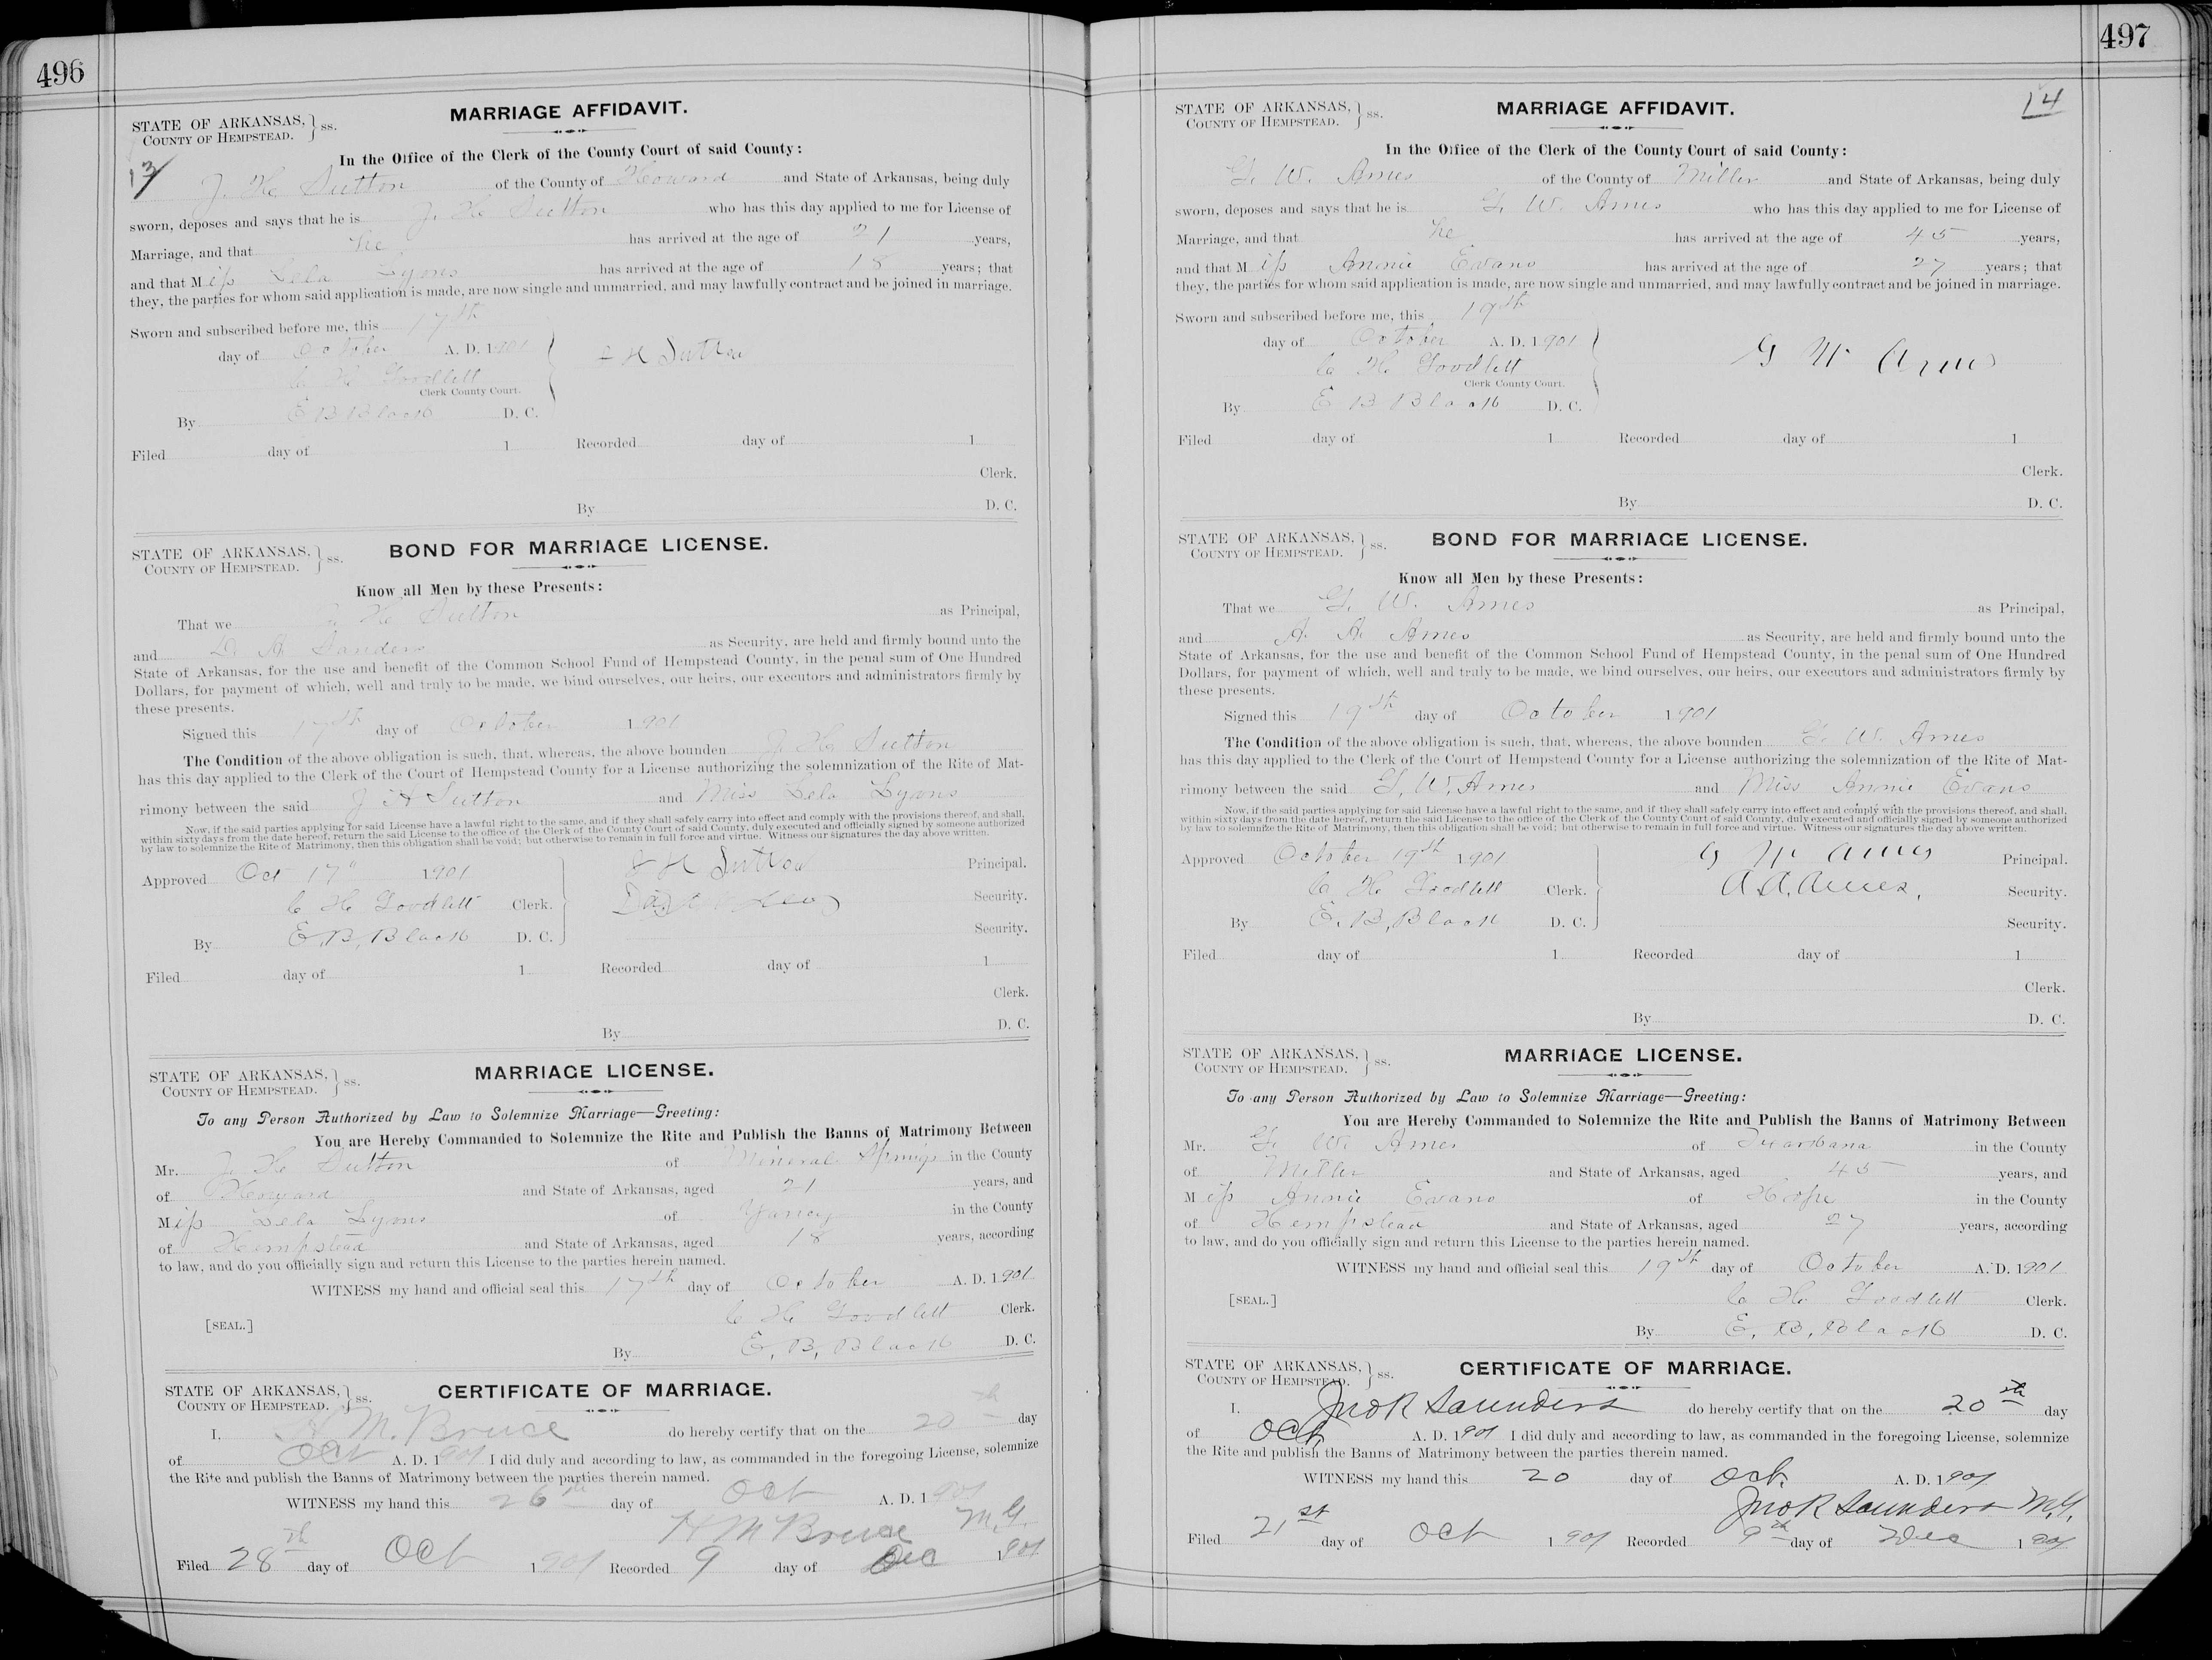 496
MARRIAGE AFFIDAVIT.
STATE OF ARKANSAS,
COUNTY OF HEMPSTEAD. } ss.
In the Office of the Clerk of the County Court of said County:
13
J. H. Sutton of the County of Howard and State of Arkansas, being duly
sworn, deposes and says that he is J. H. Sutton who has this day applied to me for License of
Marriage, and that he has arrived at the age of 21 years,
and that Miss Lela Lyons has arrived at the age of 18 years; that
they, the parties for whom said application is made, are now single and unmarried, and may lawfully contract and be joined in marriage.
Sworn and subscribed before me, this 17th
day of October A. D. 1901
J H Sutton
C. H. Goodlett
Clerk County Court.
By E B Black D. C.
Filed day of 1 Recorded day of 1
Clerk.
By D. C.
STATE OF ARKANSAS,
COUNTY OF HEMPSTEAD. } ss.
BOND FOR MARRIAGE LICENSE.
Know all Men by these Presents:
That we J. H. Sutton as Principal,
and D. A. Sanders as Security, are held and firmly bound unto the
State of Arkansas, for the use and benefit of the Common School Fund of Hempstead County, in the penal sum of One Hundred
Dollars, for payment of which, well and truly to be made, we bind ourselves, our heirs, our executors and administrators firmly by
these presents.
Signed this 17th day of October 1901
The Condition of the above obligation is such, that, whereas, the above bounden J. H. Sutton
has this day applied to the Clerk of the Court of Hempstead County for a License authorizing the solemnization of the Rite of Mat-
rimony between the said J H Sutton and Miss Lela Lyons
Now, if the said parties applying for said License have a lawful right to the same, and if they shall safely carry into effect and comply with the provisions thereof, and shall,
within sixty days from the date hereof, return the said License to the office of the Clerk of the County Court of said County, duly executed and officially signed by someone authorized
by law to solemnize the Rite of Matrimony, then this obligation shall be void; but otherwise to remain in full force and virtue. Witness our signatures the day above written.
Approved Oct 17" 1901 J H Sutton Principal.
C. H. Goodlett Clerk. Security.
By E. B. Black D. C. Security.
Filed day of 1 Recorded day of 1
Clerk.
By D. C.
STATE OF ARKANSAS,
COUNTY OF HEMPSTEAD. } ss.
MARRIAGE LICENSE.
To any Person Authorized by Law to Solemnize Marriage—Greeting:
You are Hereby Commanded to Solemnize the Rite and Publish the Banns of Matrimony Between
Mr. J. H. Sutton of Mineral Springs in the County
of Howard and State of Arkansas, aged 21 years, and
Miss Lela Lyons of Yancy in the County
of Hempstead and State of Arkansas, aged 18 years, according
to law, and do you officially sign and return this License to the parties herein named.
WITNESS my hand and official seal this 17th day of October A. D. 1901
[SEAL.] C. H. Goodlett Clerk.
By E. B. Black D. C.
STATE OF ARKANSAS,
COUNTY OF HEMPSTEAD. } ss.
CERTIFICATE OF MARRIAGE.
I, H. M. Bruce do hereby certify that on the 20th day
of Oct A. D. 1901 I did duly and according to law, as commanded in the foregoing License, solemnize
the Rite and publish the Banns of Matrimony between the parties therein named.
WITNESS my hand this 26th day of Oct A. D. 1901
H M Bruce M. G.
Filed 28th day of Oct 1901 Recorded 9 day of Dec 1901
497
14
STATE OF ARKANSAS,
COUNTY OF HEMPSTEAD. } ss.
MARRIAGE AFFIDAVIT.
In the Office of the Clerk of the County Court of said County:
G. W. Ames of the County of Miller and State of Arkansas, being duly
sworn, deposes and says that he is G. W. Ames who has this day applied to me for License of
Marriage, and that he has arrived at the age of 45 years,
and that Miss Annie Evans has arrived at the age of 27 years; that
they, the parties for whom said application is made, are now single and unmarried, and may lawfully contract and be joined in marriage.
Sworn and subscribed before me, this 19th
day of October A. D. 1901
G W Ames
C. H. Goodlett
Clerk County Court.
By E B Black D. C.
Filed day of 1 Recorded day of 1
Clerk.
By D. C.
STATE OF ARKANSAS,
COUNTY OF HEMPSTEAD. } ss.
BOND FOR MARRIAGE LICENSE.
Know all Men by these Presents:
That we G. W. Ames as Principal,
and A. A. Ames as Security, are held and firmly bound unto the
State of Arkansas, for the use and benefit of the Common School Fund of Hempstead County, in the penal sum of One Hundred
Dollars, for payment of which, well and truly to be made, we bind ourselves, our heirs, our executors and administrators firmly by
these presents.
Signed this 19th day of October 1901
The Condition of the above obligation is such, that, whereas, the above bounden G. W. Ames
has this day applied to the Clerk of the Court of Hempstead County for a License authorizing the solemnization of the Rite of Mat-
rimony between the said G. W. Ames and Miss Annie Evans
Now, if the said parties applying for said License have a lawful right to the same, and if they shall safely carry into effect and comply with the provisions thereof, and shall,
within sixty days from the date hereof, return the said License to the office of the Clerk of the County Court of said County, duly executed and officially signed by someone authorized
by law to solemnize the Rite of Matrimony, then this obligation shall be void; but otherwise to remain in full force and virtue. Witness our signatures the day above written.
Approved October 19th 1901 G W Ames Principal.
C. H. Goodlett Clerk. A. A. Ames, Security.
By E. B. Black D. C. Security.
Filed day of 1 Recorded day of 1
Clerk.
By D. C.
STATE OF ARKANSAS,
COUNTY OF HEMPSTEAD. } ss.
MARRIAGE LICENSE.
To any Person Authorized by Law to Solemnize Marriage—Greeting:
You are Hereby Commanded to Solemnize the Rite and Publish the Banns of Matrimony Between
Mr. G. W. Ames of Texarkana in the County
of Miller and State of Arkansas, aged 45 years, and
Miss Annie Evans of Hope in the County
of Hempstead and State of Arkansas, aged 27 years, according
to law, and do you officially sign and return this License to the parties herein named.
WITNESS my hand and official seal this 19th day of October A. D. 1901
[SEAL.] C. H. Goodlett Clerk.
By E. B. Black D. C.
STATE OF ARKANSAS,
COUNTY OF HEMPSTEAD. } ss.
CERTIFICATE OF MARRIAGE.
I, Jno R Saunders do hereby certify that on the 20th day
of Oct. A. D. 1901 I did duly and according to law, as commanded in the foregoing License, solemnize
the Rite and publish the Banns of Matrimony between the parties therein named.
WITNESS my hand this 20 day of Oct. A. D. 1901
Jno R Saunders M. G.
Filed 21st day of Oct 1901 Recorded 9th day of Dec 1901